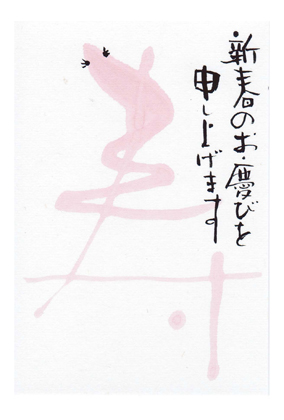 新春のお慶びを
申し上げます
寿